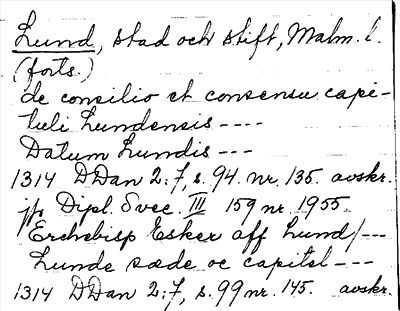 Lund, stad och stift, Malm. l.
(forts.)
de consilio et consensu capi-
tuli Lundensis ----
Datum Lundis ---
1314 DDan 2:7, s. 94. nr. 135. avskr.
jfr Dipl. Svec. III 159 nr. 1955.
Erchebisp Esker aff Lund/---
Lunde sæde oc capitel ---
1314 DDan 2:7, s. 99 nr. 145. avskr.